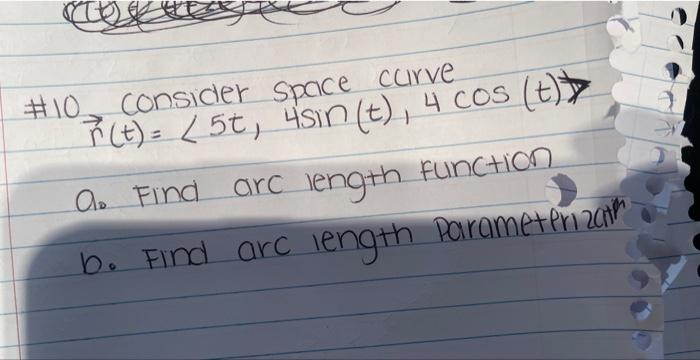 #10 consider space curve
r⃗(t) = <5t, 4sin(t), 4 cos (t)>
a. Find arc length function
b. Find arc length parameterizatn